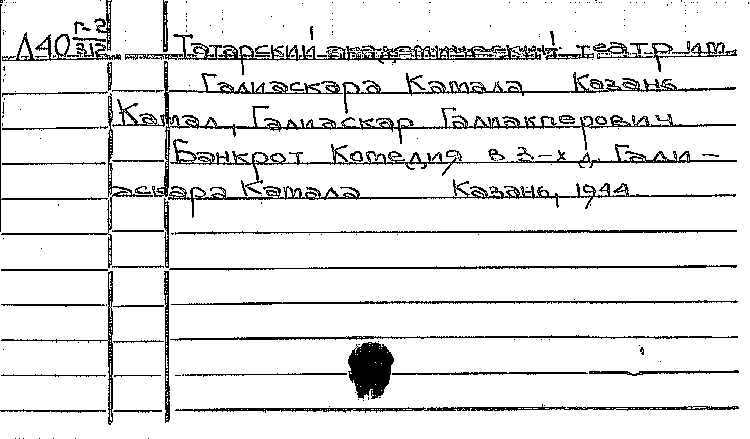 Л40 Г-2/313 Татарский академический театр им.
Галиаскара Камала Казань
Камал, Галиаскар Галиакперович
Банкрот. Комедия в 3-х д. Гали-
аскара Камала Казань, 1944.